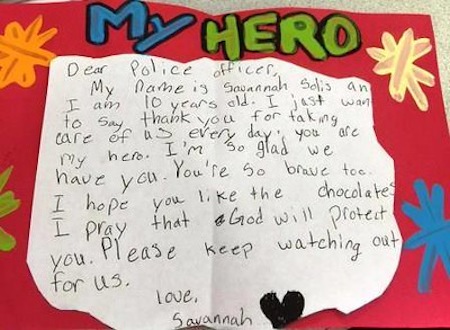 My HERO
Dear Police officer,
My name is Savannah Solis an
I am 10 years old. I just wan
to say thank you for taking
care of us every day, you are
my hero. I'm so glad we
have you. You're so brave too.
I hope you like the chocolates
I pray that God will protect
you. Please keep watching out
for us.
love,
Savannah